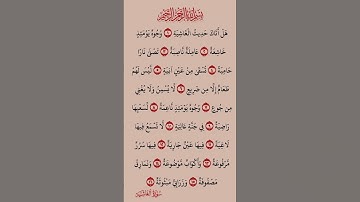 بِسْمِ اللَّهِ الرَّحْمَٰنِ الرَّحِيمِ
هَلْ أَتَاكَ حَدِيثُ الْغَاشِيَةِ ۝ وُجُوهٌ يَوْمَئِذٍ
خَاشِعَةٌ ۝ عَامِلَةٌ نَّاصِبَةٌ ۝ تَصْلَىٰ نَارًا
حَامِيَةً ۝ تُسْقَىٰ مِنْ عَيْنٍ آنِيَةٍ ۝ لَّيْسَ لَهُمْ
طَعَامٌ إِلَّا مِن ضَرِيعٍ ۝ لَّا يُسْمِنُ وَلَا يُغْنِي
مِن جُوعٍ ۝ وُجُوهٌ يَوْمَئِذٍ نَّاعِمَةٌ ۝ لِّسَعْيِهَا
رَاضِيَةٌ ۝ فِي جَنَّةٍ عَالِيَةٍ ۝ لَّا تَسْمَعُ فِيهَا
لَاغِيَةً ۝ فِيهَا عَيْنٌ جَارِيَةٌ ۝ فِيهَا سُرُرٌ
مَّرْفُوعَةٌ ۝ وَأَكْوَابٌ مَّوْضُوعَةٌ ۝ وَنَمَارِقُ
مَصْفُوفَةٌ ۝ وَزَرَابِيُّ مَبْثُوثَةٌ ۝
سورة الغاشية